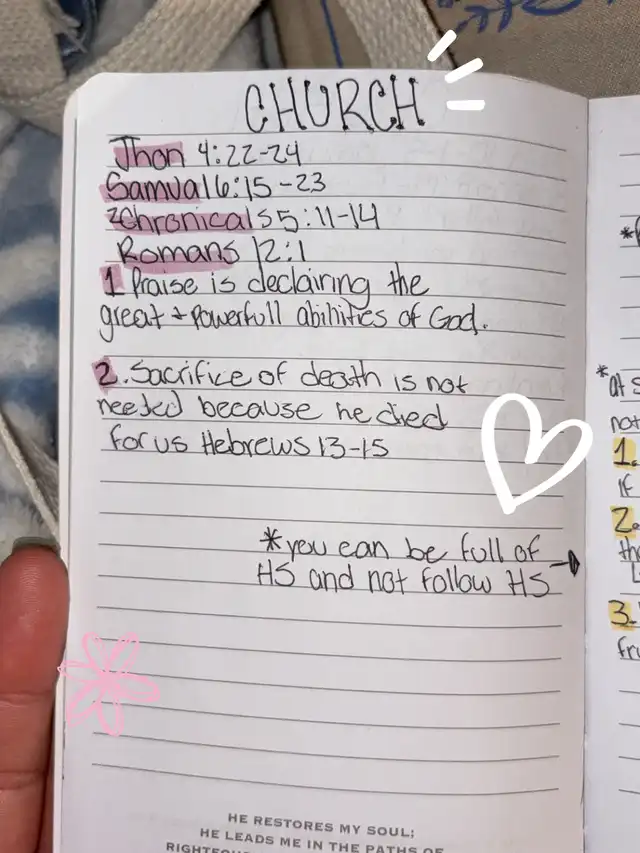 CHURCH
Jhon 4:22-24
Samual 6:15-23
2chronicals 5:11-14
Romans 12:1
1 Praise is declairing the
great + powerfull abihities of God.
2. Sacrifice of death is not
needed because he died
for us Hebrews 13-15
*you can be full of
HS and not follow HS
HE RESTORES MY SOUL;
HE LEADS ME IN THE PATHS OF
*
*at
not
1.
If
2.
3.